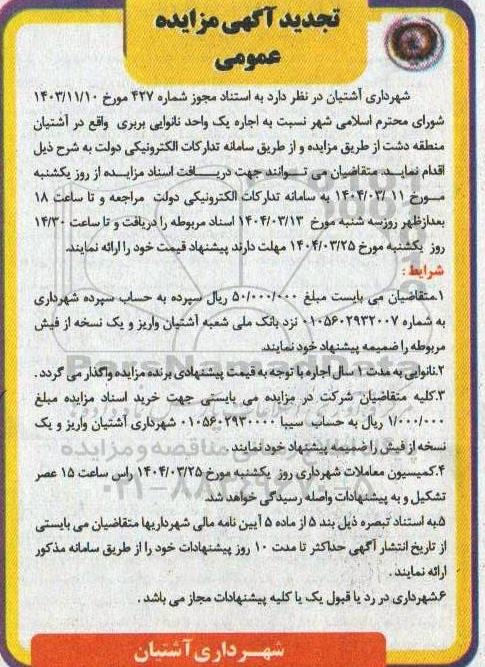 تجدید آگهی مزایده
عمومی
شهرداری آشتیان در نظر دارد به استناد مجوز شماره ۴۲۷ مورخ ۱۴۰۳/۱۱/۱۰
شورای محترم اسلامی شهر نسبت به اجاره یک واحد نانوایی بربری واقع در آشتیان
منطقه دشت از طریق مزایده و از طریق سامانه تدارکات الکترونیکی دولت به شرح ذیل
اقدام نمایـد. متقاضیان می تـوانند جهت دریـافت اسناد مزایـده از روز یکشنبه
مـورخ ۱۴۰۴/۰۳/۱۱ به سامانه تدارکات الکترونیکی دولت مراجعه و تا ساعت ۱۸
بعدازظهر روزسه شنبه مورخ ۱۴۰۴/۰۳/۱۳ اسناد مربوطه را دریافت و تا ساعت ۱۴/۳۰
روز یکشنبه مورخ ۱۴۰۴/۰۳/۲۵ مهلت دارند پیشنهاد قیمت خود را ارائه نمایند.
شرایط :
۱.متقاضیان می بایست مبلغ ۵۰/۰۰۰/۰۰۰ ریال سپرده به حساب سپرده شهرداری
به شماره ۰۱۰۵۶۰۲۹۳۲۰۰۷ نزد بانک ملی شعبه آشتیان واریز و یک نسخه از فیش
مربوطه را ضمیمه پیشنهاد خود نمایند.
۲.نانوایی به مدت ۱ سال اجاره با توجه به قیمت پیشنهادی برنده مزایده واگذار می گردد .
۳.کلیه متقاضیان شرکت در مزایده می بایستی جهت خرید اسناد مزایده مبلغ
۱/۰۰۰/۰۰۰ ریال به حساب سیبا ۰۱۰۵۶۰۲۹۳۰۰۰۰ شهرداری آشتیان واریز و یک
نسخه از فیش را ضمیمه پیشنهاد خود نمایند .
۴.کمیسیون معاملات شهرداری روز یکشنبه مورخ ۱۴۰۴/۰۳/۲۵ راس ساعت ۱۵ عصر
تشکیل و به پیشنهادات واصله رسیدگی خواهد شد.
۵.به استناد تبصره ذیل بند ۵ از ماده ۵ آیین نامه مالی شهرداریها متقاضیان می بایستی
از تاریخ انتشار آگهی حداکثر تا مدت ۱۰ روز پیشنهادات خود را از طریق سامانه مذکور
ارائه نمایند .
۶.شهرداری در رد یا قبول یک یا کلیه پیشنهادات مجاز می باشد .
شهـرداری آشتیان